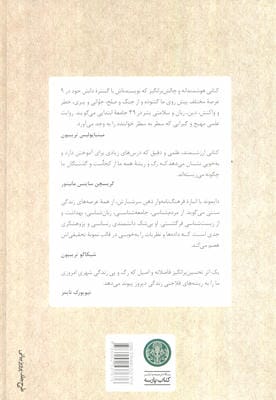 کتابی هوشمندانه و چالش‌برانگیز که نویسنده‌اش با گسترهٔ دانش خود در ۹
عرصهٔ مختلف پیش روی ما گشوده و از جنگ و صلح، جوانی و پیری، خطر
و واکنش، دین، زبان و سلامتی بشر در ۳۹ جامعهٔ ابتدایی می‌گوید. روایت
علمی مهیج و گیرایی که سطر به سطر خواننده را به وجد می‌آورد.
مینیاپولیس تریبیون
کتابی ارزشمند، علمی و دقیق که درس‌های زیادی برای آموختن دارد و
به‌خوبی نشان می‌دهد که رگ و ریشهٔ همه ما از کجاست و گذشتگان ما
چگونه می‌زیسته‌اند.
کریسچن ساینس مانیتور
دایموند با انبارهٔ فرهنگنامه‌وار ذهن سرشارش، از همهٔ عرصه‌های زندگی
سنتی می‌گوید. از مردم‌شناسی، جامعه‌شناسی، زبان‌شناسی، بهداشت و
از زیست‌شناسی فرگشتی. او بی‌شک دانشمندی رسانسی و پژوهشگری
جدی است که داده‌ها و نظریات را به‌خوبی در قالب نمونهٔ تحقیقی‌اش
هضم می‌کند.
شیکاگو تریبیون
یک اثر تحسین‌برانگیز فاضلانه و اصیل که رگ و پی زندگی شهری امروزی
ما را به ریشه‌های فلاحتی زندگی دیروز پیوند می‌دهد.
نیویورک تایمز
کتاب پارسه